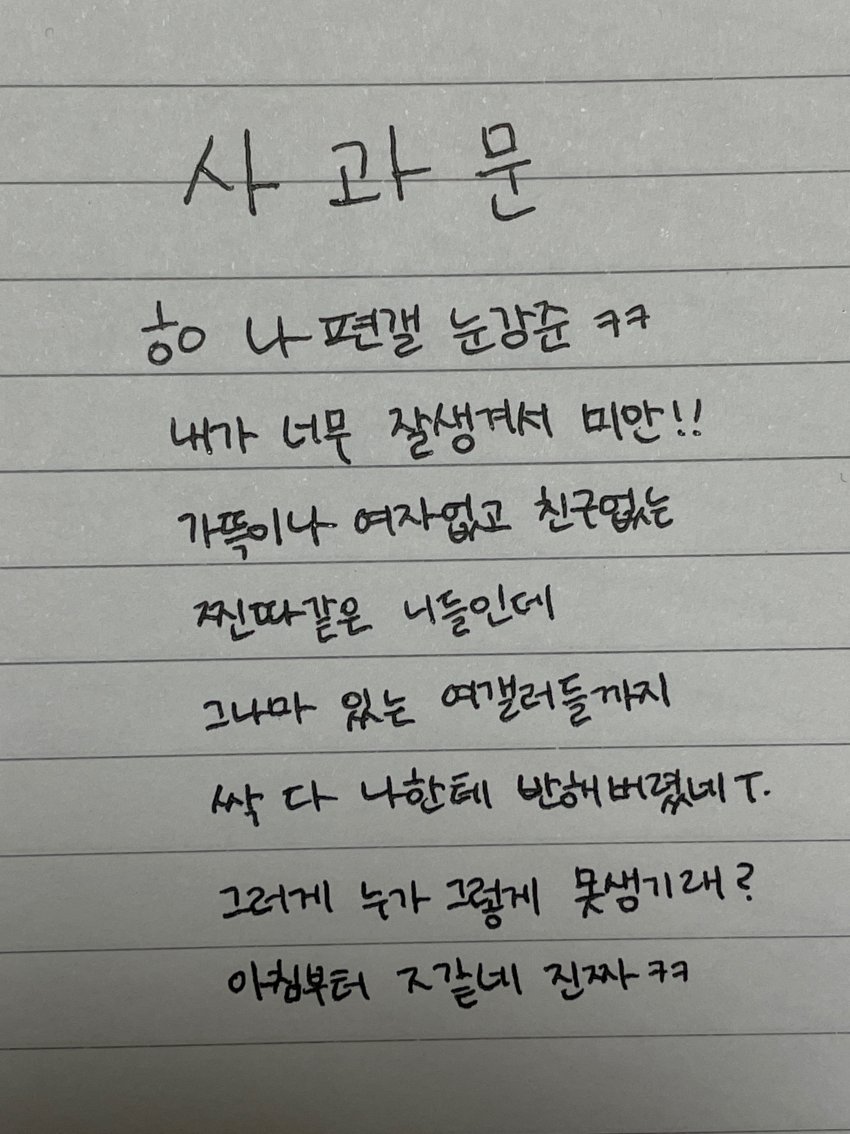 사과문
ㅎㅇ 나 편갤 눈강준 ㅋㅋ
내가 너무 잘생겨서 미안!!
가뜩이나 여자없고 친구없는
찐따같은 니들인데
그나마 있는 여갤러들까지
싹 다 나한테 반해버렸네 ㅜ.
그러게 누가 그렇게 못생기래?
아침부터 ㅈ같네 진짜 ㅋㅋ